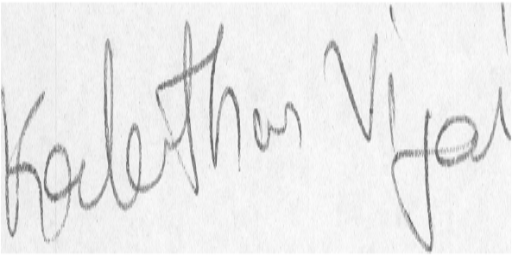 Kaleithan Vijai